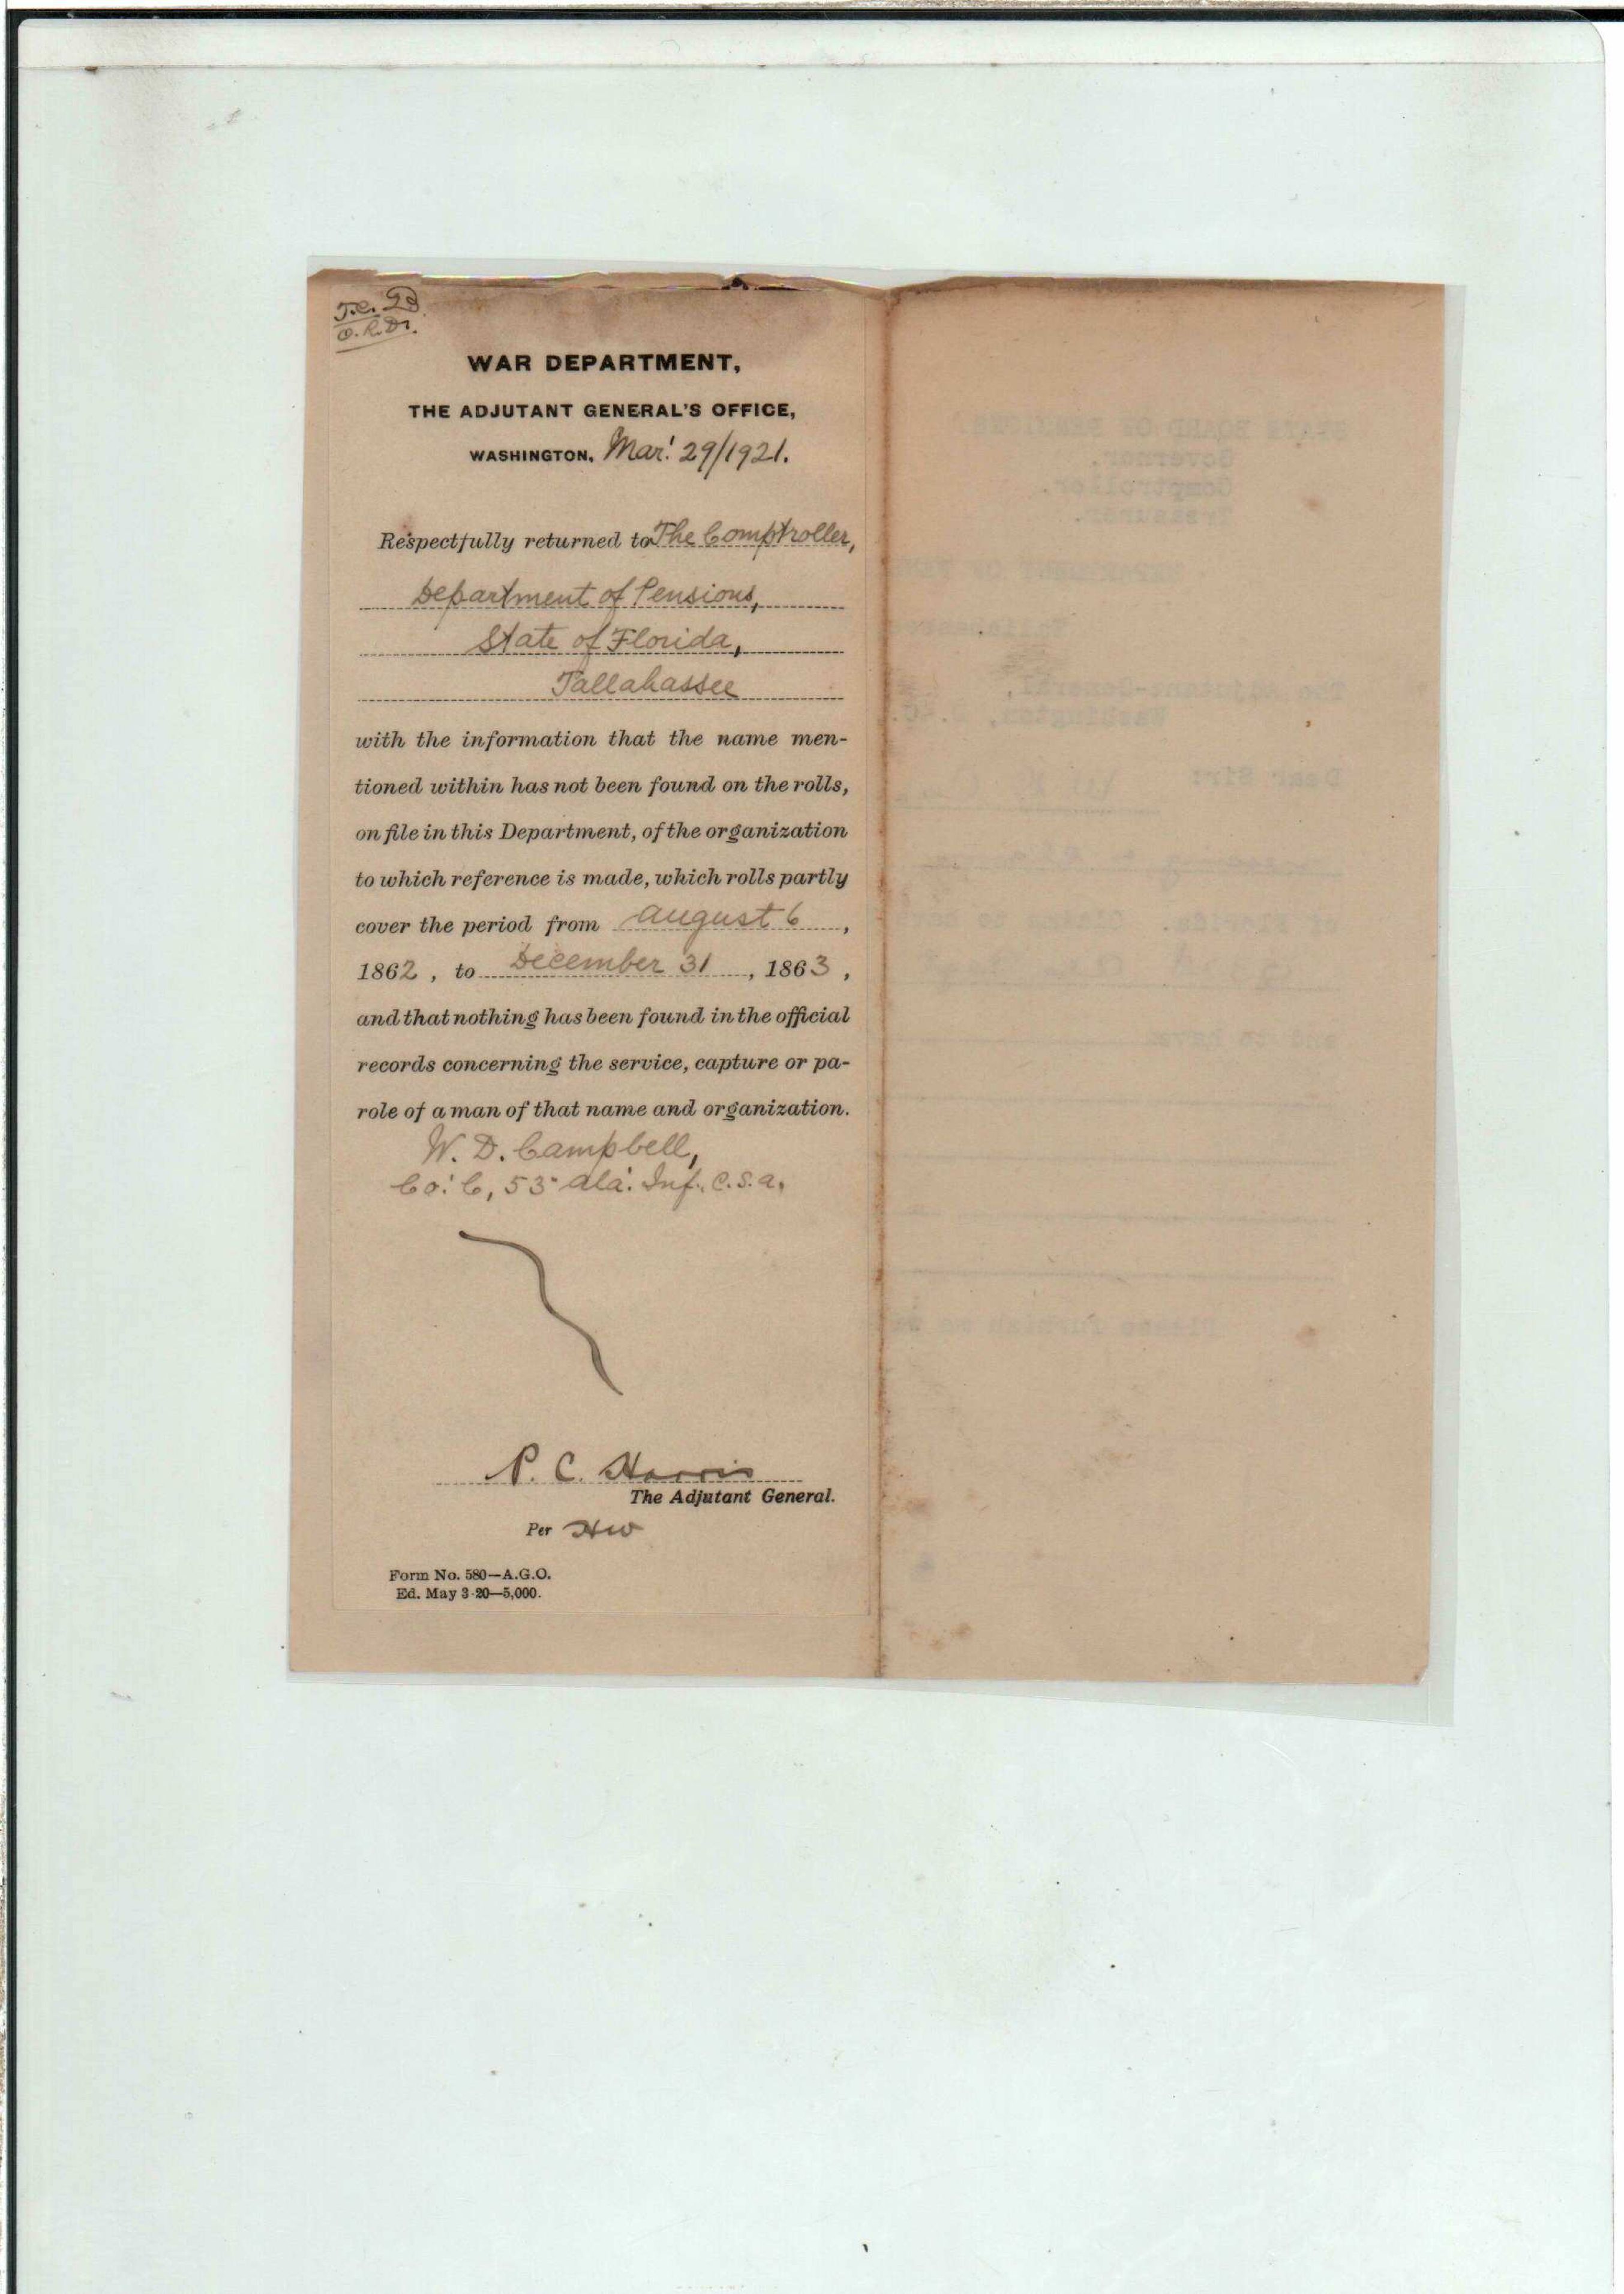 T.C.
O.R.D.
WAR DEPARTMENT,
THE ADJUTANT GENERAL'S OFFICE,
WASHINGTON, Mar! 29/1921.
Respectfully returned to The Comptroller,
Department of Pensions,
State of Florida,
Tallahassee
with the information that the name men-
tioned within has not been found on the rolls,
on file in this Department, of the organization
to which reference is made, which rolls partly
cover the period from August 6,
1862, to December 31, 1863,
and that nothing has been found in the official
records concerning the service, capture or pa-
role of a man of that name and organization.
W. D. Campbell,
Co. C, 53" Ala. Inf., C.S.A.
P. C. Harris
The Adjutant General.
Per HW
Form No. 580—A.G.O.
Ed. May 3-20—5,000.